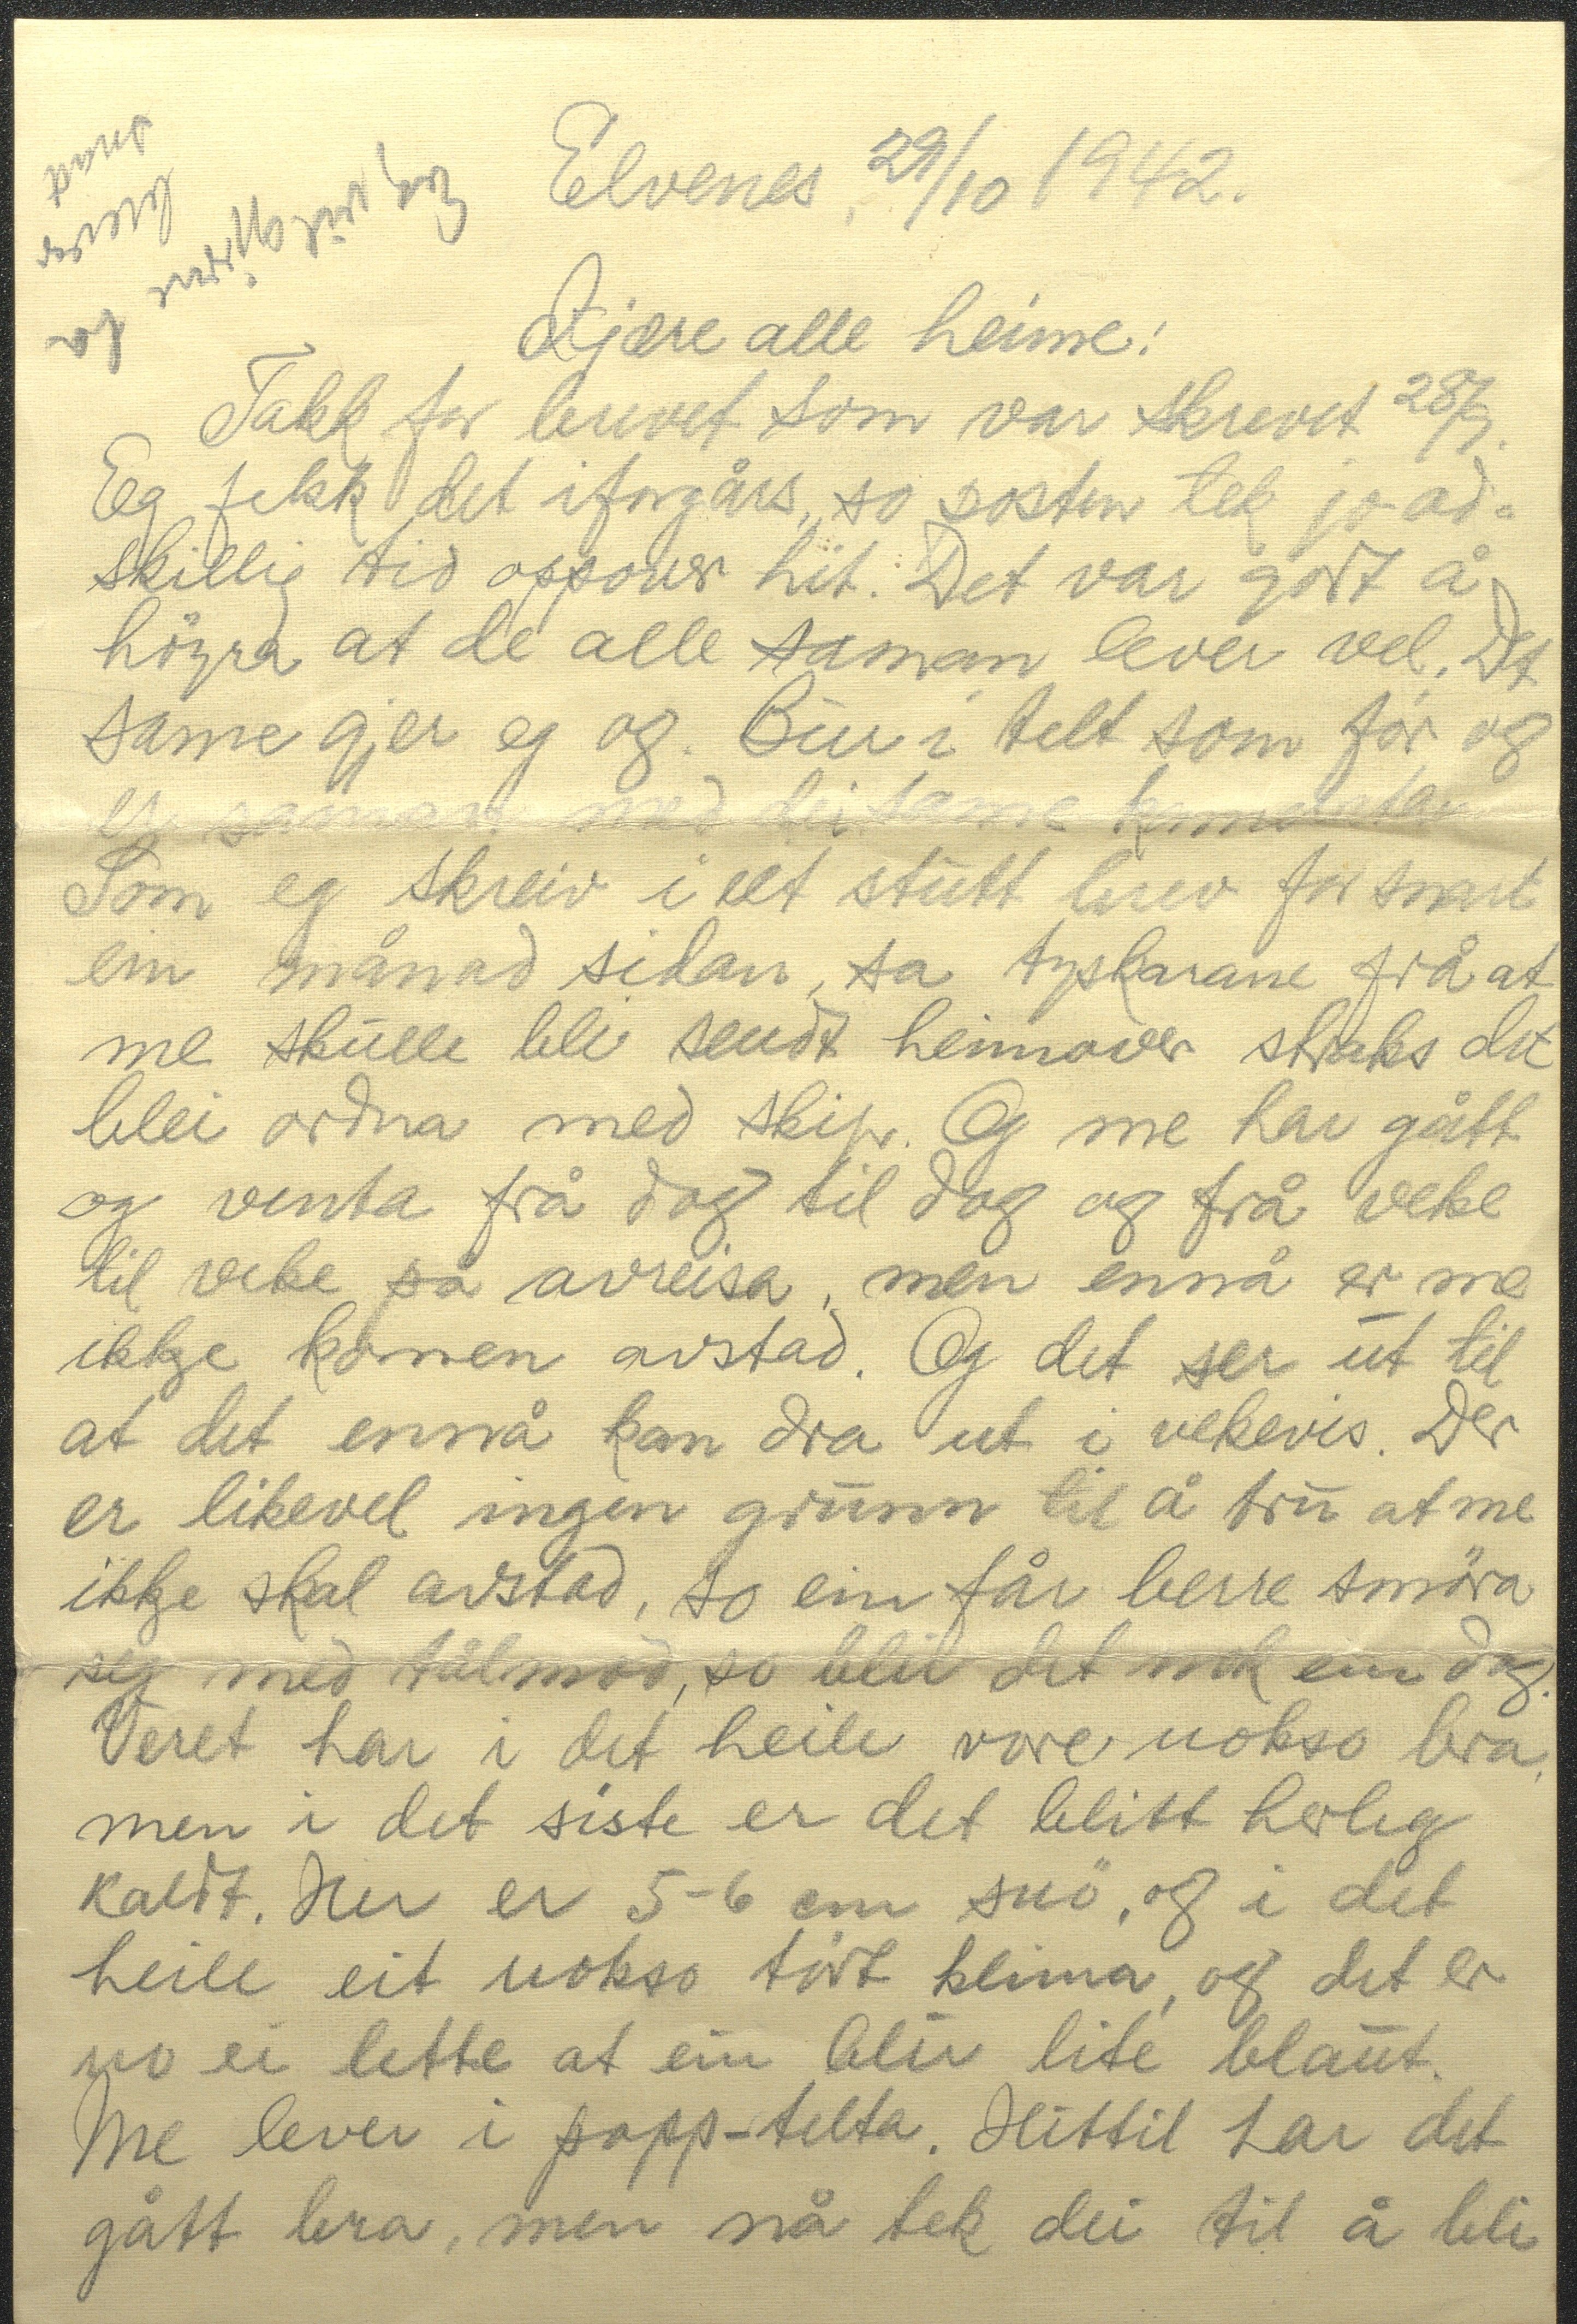 Elvenes, 29/10 1942.
Kjære alle heime!
Takk for brevet som var skrevet 28/9.
Eg fekk det iforgårs, so posten tek jo ad-
skillig tid oppover hit. Det var godt å
höyra at de alle saman lever vel. Det
same gjer eg og. Bur i telt som før og
er saman med dei same kameratar
Som eg skreiv i eit stutt brev for snart
ein månad sidan, sa tyskarane frå at
me skulle bli sendt heimover straks det
blei ordna med skip. Og me har gått
og venta frå dag til dag og frå veke
til veke på avreisa, men ennå er me
ikkje komen avstad. Og det ser ut til
at det ennå kan dra ut i vekevis. Der
er likevel ingen grunn til å tru at me
ikkje skal avstad, so ein får berre smöra
seg med tålmod, so blir det nok ein dag.
Veret har i det heile vore nokso bra,
men i det siste er det blitt herleg
kaldt. Her er 5-6 cm snö, og i det
heile eit nokso tört klima, og det er
no ei lette at ein blir lite blaut.
Me lever i papp-telta. Hittil har det
gått bra, men nå tek dei til å bli